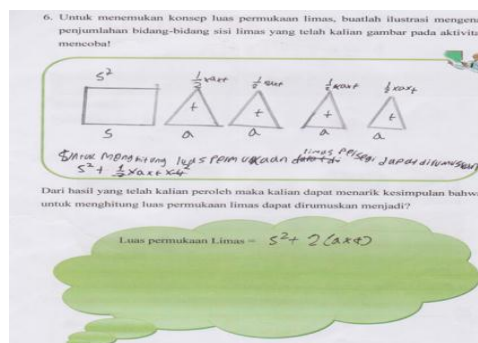 6. Untuk menemukan konsep luas permukaan limas, buatlah ilustrasi mengen
penjumlahan bidang-bidang sisi limas yang telah kalian gambar pada aktivita
mencoba!
s² ½xaxt ½xaxt ½xaxt ½xaxt
t t t t
s a a a a
Untuk menghitung luas permukaan limas persegi dapat dirumuskan
s² + ½ x a x t x 4
Dari hasil yang telah kalian peroleh maka kalian dapat menarik kesimpulan bahw
untuk menghitung luas permukaan limas dapat dirumuskan menjadi?
Luas permukaan Limas = s² + 2(axt)